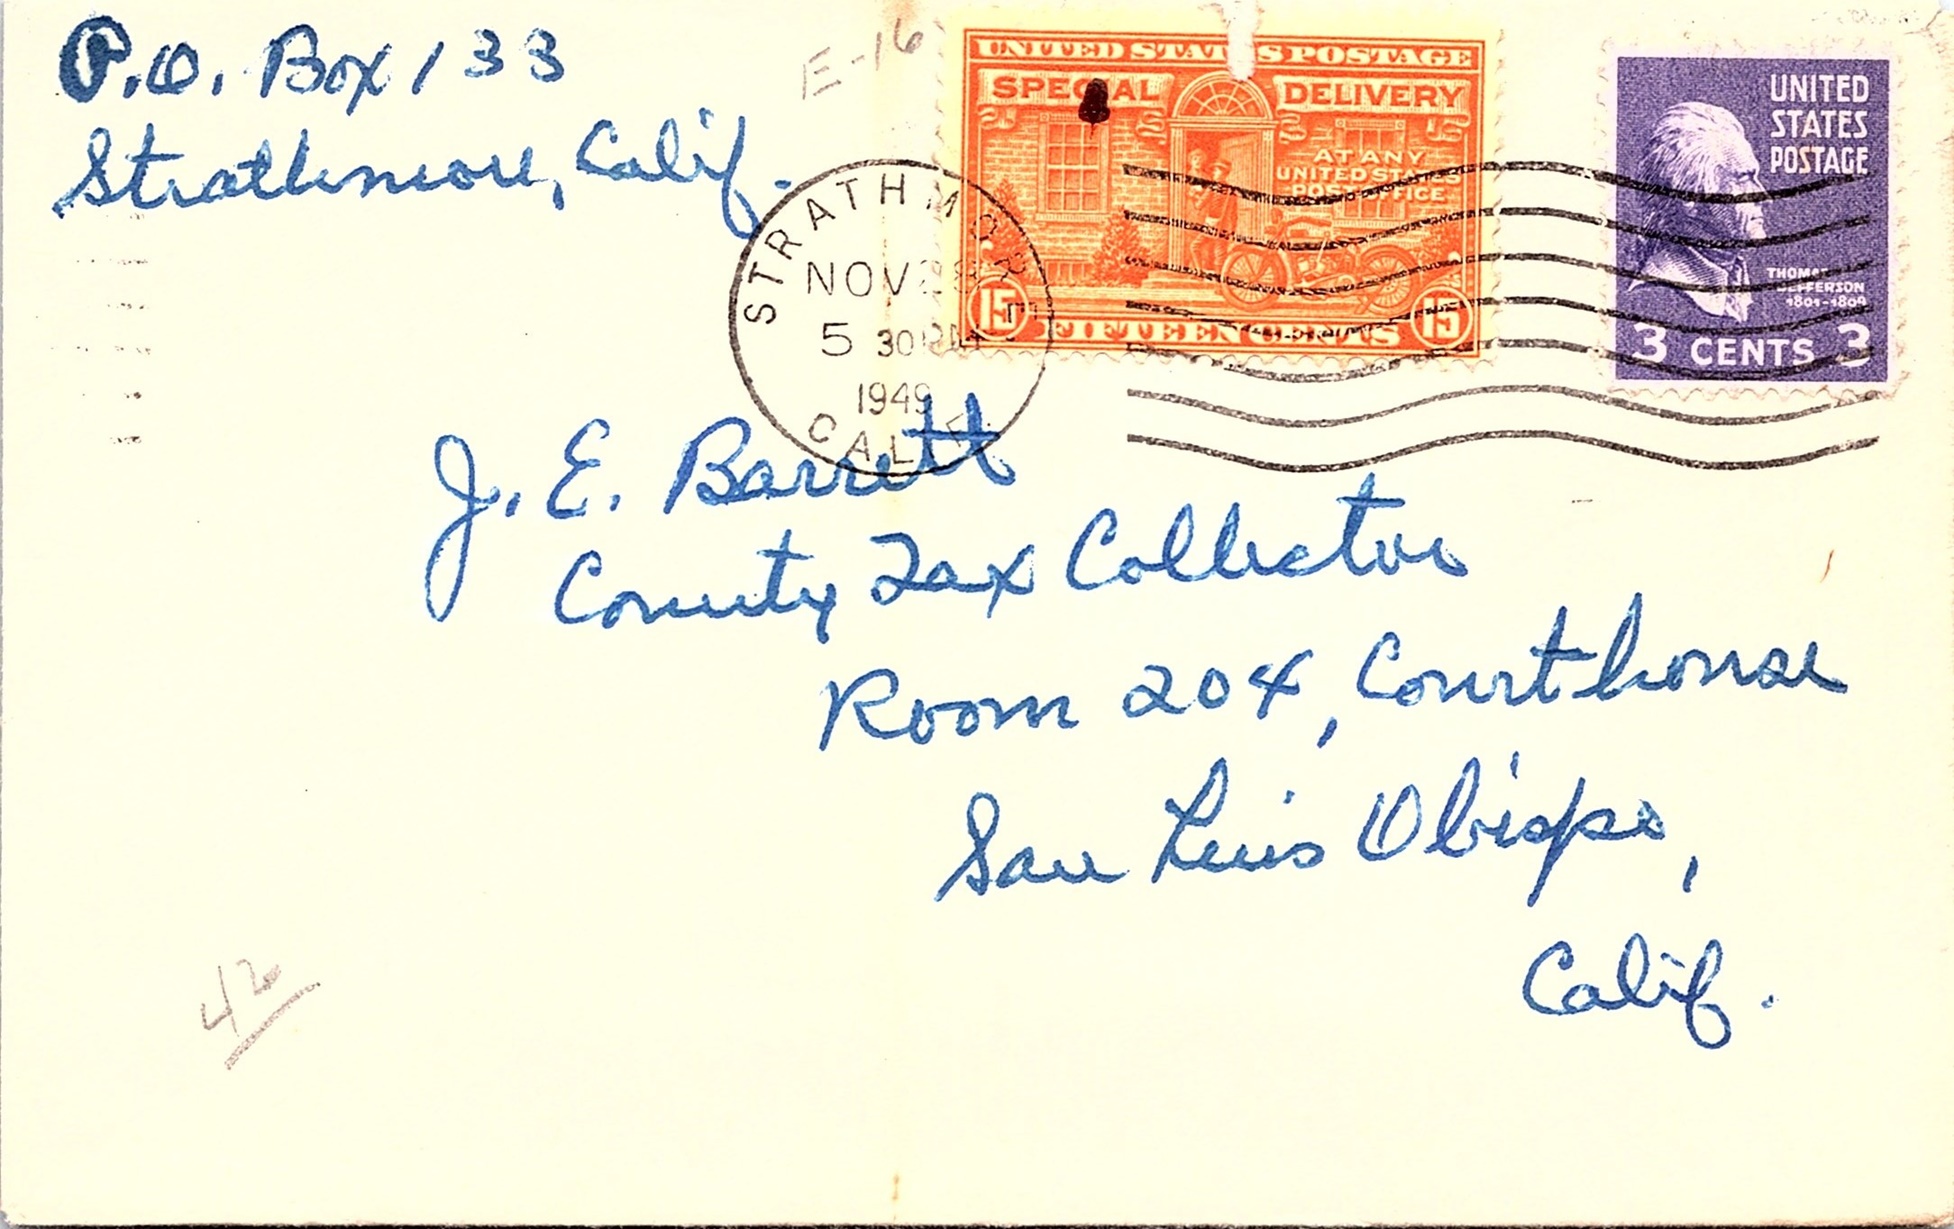 P.O. Box 133
Strathmore, Calif.
E-16
UNITED STATES POSTAGE
SPECIAL DELIVERY
AT ANY
UNITED STATES
POST OFFICE
15 FIFTEEN CENTS 15
UNITED
STATES
POSTAGE
THOMAS
JEFFERSON
1801-1809
3 CENTS 3
STRATHMORE
NOV 28
5 30 PM
1949
CALIF.
J. E. Barrett
County Tax Collector
Room 204, Courthouse
San Luis Obispo,
Calif.